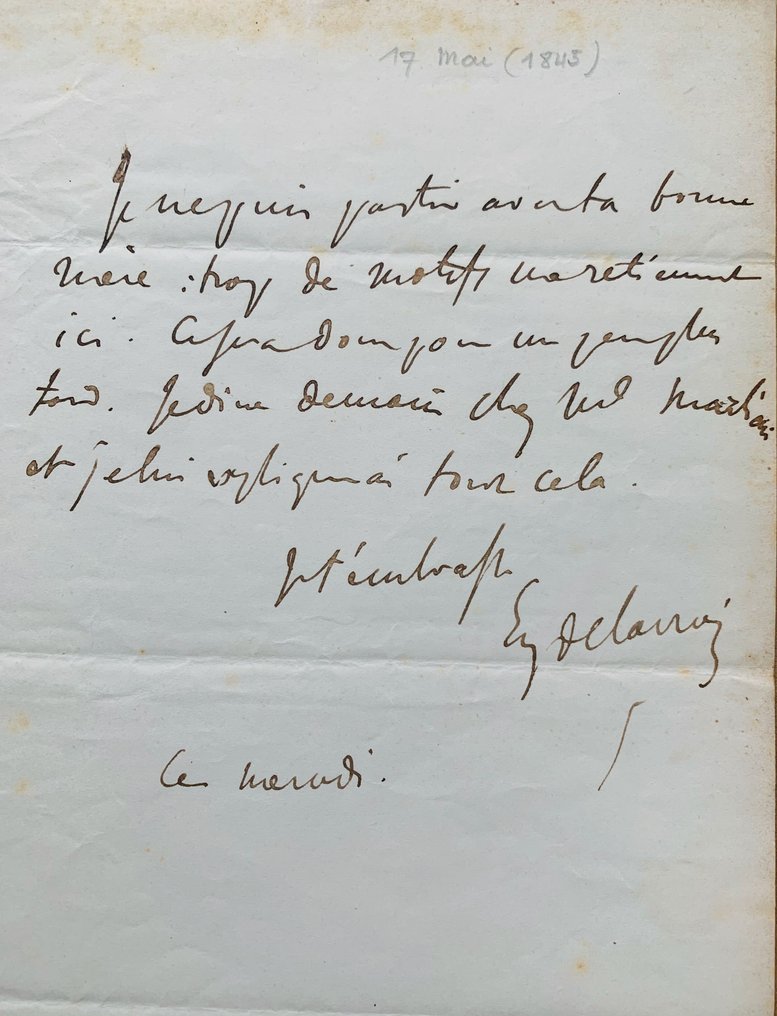 17 Mai (1843)
Je ne puis partir avec ta bonne
mère : trop de motifs me retiennent
ici. Ce sera donc pour un peu plus
tard. Je dine demain chez Md Marliani
et je lui expliquerai tout cela.
Je t'embrasse
Eug Delacroix
Ce mercredi.